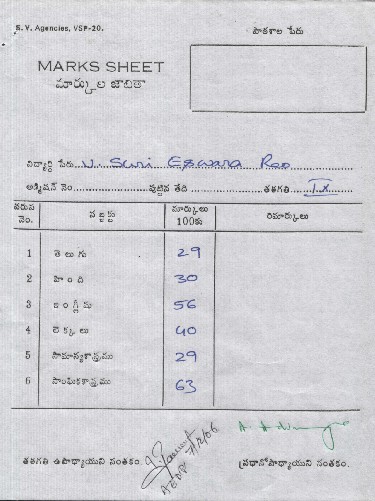 S. V. Agencies, VSP-20.
పాఠశాల పేరు
MARKS SHEET
మార్కుల జాబితా
విద్యార్థి పేరు V. Suri Eswara Rao
అడ్మిషన్ నెం. పుట్టిన తేది తరగతి IX
వరుస నెం. సబ్జెక్టు మార్కులు 100కు రిమార్కులు
1 తెలుగు 29
2 హింది 30
3 ఇంగ్లీషు 56
4 లెక్కలు 40
5 సామాన్యశాస్త్రము 29
6 సాంఘికశాస్త్రము 63
తరగతి ఉపాధ్యాయుని సంతకం. ప్రధానోపాధ్యాయుని సంతకం.